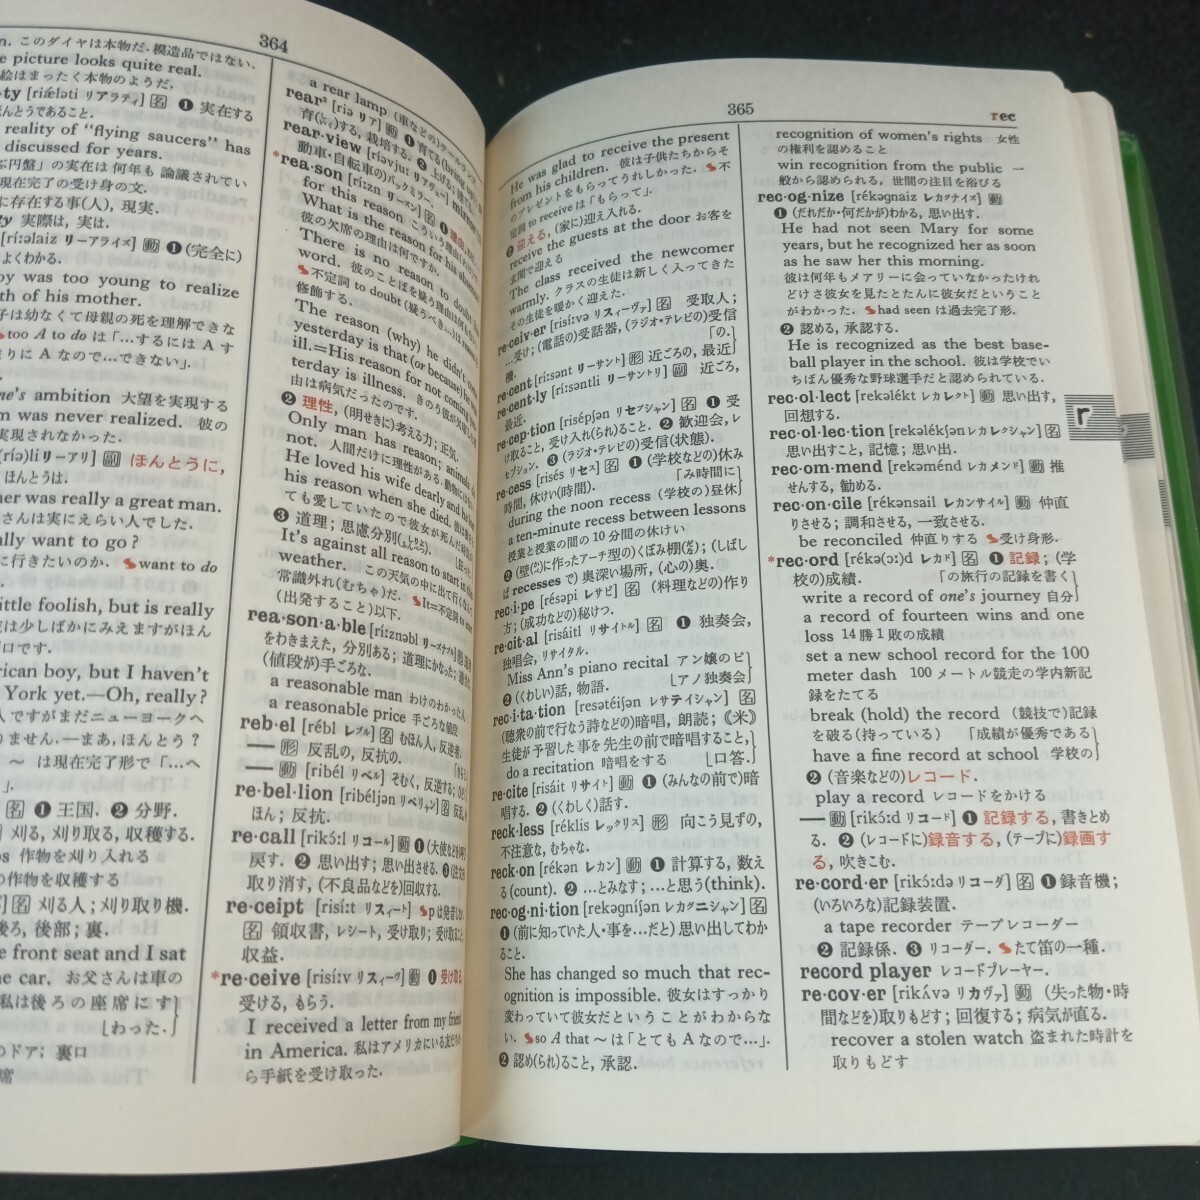 364
n. このダイヤは本物だ. 模造品ではない.
e picture looks quite real.
絵はまったく本物のようだ.
ty [riǽləti リアラティ] 名 ❶ 実在する
んとうであること.
reality of "flying saucers" has
discussed for years.
ぶ円盤」の実在は 何年も 論議されてい
現在完了の受け身の文.
に存在する事(人), 現実.
ty 実際は, 実は.
[rí:əlaiz リーアライズ] 動 ❶ (完全に)
よくわかる.
oy was too young to realize
th of his mother.
子は幼なくて母親の死を理解できな
too A to do は「…するには A す
ぎりに A なので…できない」.
one's ambition 大望を実現する
m was never realized. 彼の
実現しなかった.
(riə)li リーアリ] 副 ほんとうに,
ほんとうは.
her was really a great man.
さんは実にえらい人でした.
ally want to go?
に行きたいのか. want to do
little foolish, but is really
彼は少しばかにみえますがほん
口です.
rican boy, but I haven't
York yet.—Oh, really?
人ですがまだニューヨークへ
りません.—まあ, ほんとう?
～ は現在完了形で「…へ
名 ❶ 王国. ❷ 分野.
刈る, 刈り取る, 収穫する.
ps 作物を刈り入れる
の作物を収穫する
名 刈る人; 刈り取り機.
後ろ, 後部; 裏.
he front seat and I sat
he car. お父さんは車の
私は後ろの座席にす
わった.
のドア; 裏口
a rear lamp (車などの)テールランプ
rear² [riə リア] 動 ❶ 育てる
育(そだ)てる, 栽培する. ❷
rear-view [ríəvju: リアヴュー]
動車・自転車のバックミラー.
*rea·son [rí:zn リーズン] 名 ❶ 理由
for this reason こういう理由
What is the reason for his absence?
彼の欠席の理由は何ですか.
There is no reason to doubt his
word. 彼のことばを疑う理由は
不定詞 to doubt (疑うべき…)は
修飾する.
The reason (why) he didn't come
yesterday is that (or because) he was
ill.=His reason for not coming yes-
terday is illness. きのう彼が
由は病気だったのです.
❷ 理性, (明せきに)考える力; 正気.
Only man has reason; animals do
not. 人間だけに理性がある. 動物にはない.
He loved his wife dearly and he lost
his reason when she died. 彼は妻を
ても愛していたので彼女が死んだ時
❸ 道理; 思慮分別
It's against all reason to start in this
weather. この天気の中に出て行くなんて
常識外れ(むちゃ)だ. It=不定詞 to start
(出発すること)以下.
rea·son·a·ble [rí:znəbl リーズナブル] 形 道理
をわきまえた, 分別ある; 道理にかなった;
(値段が)手ごろな.
a reasonable man わけのわかった人
a reasonable price 手ごろな値段
reb·el [rébl レブル] 名 むほん人, 反逆者.
— 形 反乱の, 反抗の.
— 動 [ribél リベル] そむく, 反逆する;
re·bel·lion [ribéljən リベリャン] 名 反乱, む
ほん; 反抗.
re·call [rikɔ́:l リコール] 動 ❶ (大使などを)呼び
戻す. ❷ 思い出す; 思い出させる. ❸
取り消す, (不良品などを)回収する.
re·ceipt [risí:t リスィート] pは発音しない.
名 領収書, レシート, 受け取り; 受け取ること
収益.
*re·ceive [risí:v リスィーヴ] 動 ❶ 受け取る,
受ける, もらう.
I received a letter from my friend
in America. 私はアメリカにいる友だちか
ら手紙を受け取った.
365
rec
He was glad to receive the present
from his children. 彼は子供たちからそ
のプレゼントをもらってうれしかった. 不
定詞 to receive は「もらって」.
❷ 迎える, (家に)迎え入れる.
receive the guests at the door お客を
玄関で迎える
The class received the newcomer
warmly. クラスの生徒は新しく入ってきた
その生徒を暖かく迎えた.
re·ceiv·er [risí:və リスィーヴァ] 名 受取人;
…受け; (電話の)受話器, (ラジオ・テレビの)受信
機. 「の.
re·cent [rí:sənt リーサント] 形 近ごろの, 最近
re·cent·ly [rí:səntli リーサントリ] 副 近ごろ,
最近.
re·cep·tion [risépʃən リセプシャン] 名 ❶ 受
け取ること, 受け入れ(られ)ること. ❷ 歓迎会, レ
セプション. ❸ (ラジオ・テレビの)受信(状態).
re·cess [risés リセス] 名 ❶ (学校などの)休み
時間, 休けい(時間). 「み時間に
during the noon recess (学校の)昼休
a ten-minute recess between lessons
授業と授業の間の 10 分間の休けい
❷ (壁に作ったアーチ型の)くぼみ棚; (しばし
ば recesses で) 奥深い場所, (心の)奥.
rec·i·pe [résəpi レサピ] 名 (料理などの)作り
方; (成功などの)秘けつ.
re·cit·al [risáitl リサイトル] 名 ❶ 独奏会,
独唱会, リサイタル.
Miss Ann's piano recital アン嬢のピ
アノ独奏会
❷ (くわしい)話, 物語.
rec·i·ta·tion [resətéiʃən レサテイシャン] 名
(聴衆の前で行なう詩などの)暗唱, 朗読; 《米》
生徒が予習した事を先生の前で暗唱すること,
口答.
do a recitation 暗唱をする
re·cite [risáit リサイト] 動 ❶ (みんなの前で)暗
唱する. ❷ (くわしく)話す.
reck·less [réklis レックリス] 形 向こう見ずの,
不注意な, むちゃな.
reck·on [rékən レカン] 動 ❶ 計算する, 数え
る (count). ❷ …とみなす; …と思う (think).
rec·og·ni·tion [rekəgníʃən レカグニシャン] 名
❶ (前に知っていた人・事を…だと) 思い出してわか
ること.
She has changed so much that rec-
ognition is impossible. 彼女はすっかり
変わっていて彼女だということがわからな
い. so A that ～ は「とても A なので…」.
❷ 認め(られ)ること, 承認.
recognition of women's rights 女性
の権利を認めること
win recognition from the public 一
般から認められる, 世間の注目を浴びる
rec·og·nize [rékəgnaiz レカグナイズ] 動
❶ (だれだか・何だかが)わかる, 思い出す.
He had not seen Mary for some
years, but he recognized her as soon
as he saw her this morning.
彼は何年もメアリーに会っていなかったけれ
どけさ彼女を見たとたんに彼女だということ
がわかった. had seen は過去完了形.
❷ 認める, 承認する.
He is recognized as the best base-
ball player in the school. 彼は学校でい
ちばん優秀な野球選手だと認められている.
rec·ol·lect [rekəlékt レカレクト] 動 思い出す,
回想する.
rec·ol·lec·tion [rekəlékʃən レカレクシャン] 名
思い出すこと, 記憶; 思い出.
rec·om·mend [rekəménd レカメンド] 動 推
せんする, 勧める.
rec·on·cile [rékənsail レカンサイル] 動 仲直
りさせる; 調和させる, 一致させる.
be reconciled 仲直りする 受け身形.
*rec·ord [rékə(ɔ:)d レカド] 名 ❶ 記録; (学
校の)成績. 「の旅行の記録を書く
write a record of one's journey 自分
a record of fourteen wins and one
loss 14 勝 1 敗の成績
set a new school record for the 100
meter dash 100 メートル競走の学内新記
録をたてる
break (hold) the record (競技で)記録
を破る(持っている) 「成績が優秀である
have a fine record at school 学校の
❷ (音楽などの)レコード.
play a record レコードをかける
— 動 [rikɔ́:d リコード] ❶ 記録する, 書きとめ
る. ❷ (レコードに)録音する, (テープに)録画す
る, 吹きこむ.
re·cord·er [rikɔ́:də リコーダ] 名 ❶ 録音機;
(いろいろな)記録装置.
a tape recorder テープレコーダー
❷ 記録係. ❸ リコーダー. たて笛の一種.
record player レコードプレーヤー.
re·cov·er [rikʌ́və リカヴァ] 動 (失った物・時
間などを)取りもどす; 回復する; 病気が直る.
recover a stolen watch 盗まれた時計を
取りもどす
r